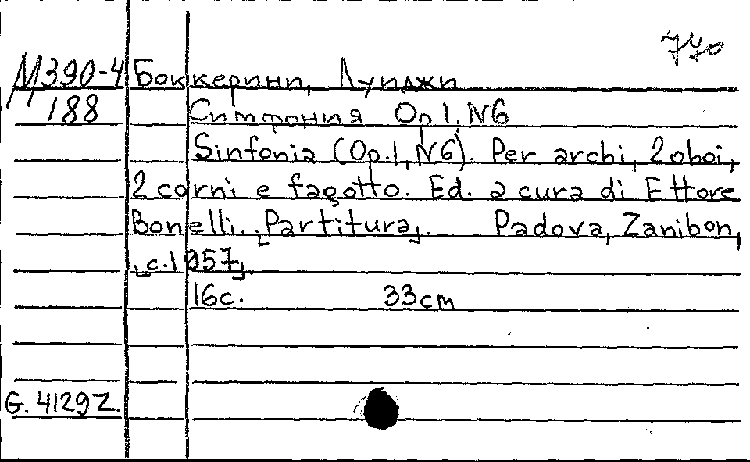 770
М390-4 Боккерини, Луиджи
188 Симфония Op.1, N6
Sinfonia (Op.1, N6). Per archi, 2 oboi,
2 corni e fagotto. Ed. a cura di Ettore
Bonelli. [Partitura]. Padova, Zanibon,
[c.1957].
16с. 33cm
G. 4129 Z.